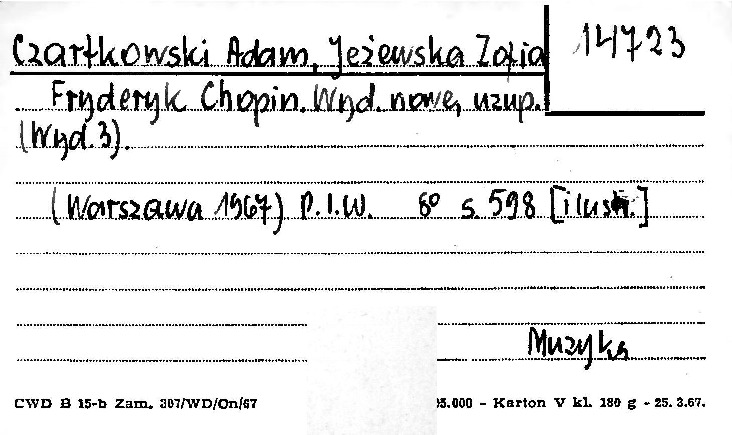 Czartkowski Adam, Jeżewska Zofia
14723
Fryderyk Chopin. Wyd. nowe, uzup.
(Wyd. 3).
(Warszawa 1967) P.I.W. 8° s. 598 [ilustr.]
Muzyka
CWD B 15-b Zam. 307/WD/On/67
35.000 - Karton V kl. 180 g - 25. 3.67.